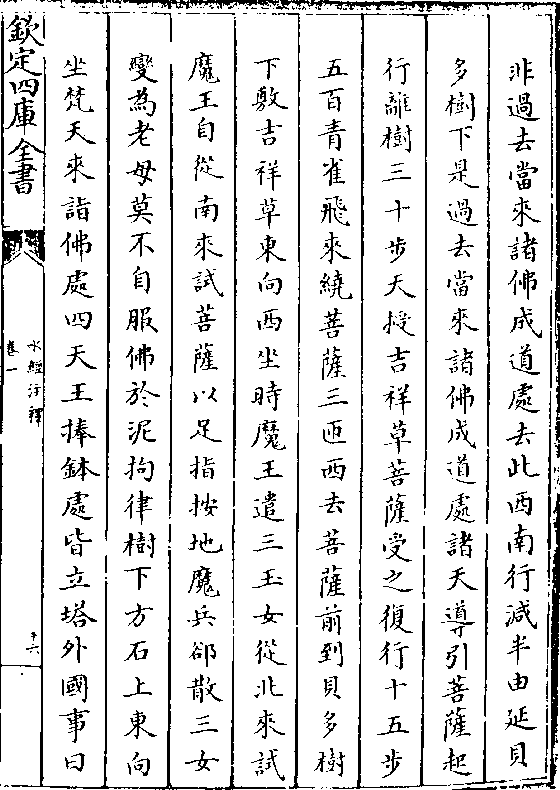 非過去當來諸佛成道處去此西南行減半由延貝
多樹下是過去當來諸佛成道處諸天導引菩薩起
行離樹三十步天授吉祥草菩薩受之復行十五步
五百青雀飛來繞菩薩三匝西去菩薩前到貝多樹
下敷吉祥草東向西坐時魔王遣三玉女從北來試
魔王自從南來試菩薩以足指按地魔兵郤散三女
變為老母莫不自服佛於泥拘律樹下方石上東向
坐梵天來詣佛處四天王捧鉢處皆立塔外國事曰
欽定四庫全書
水經注釋
卷一